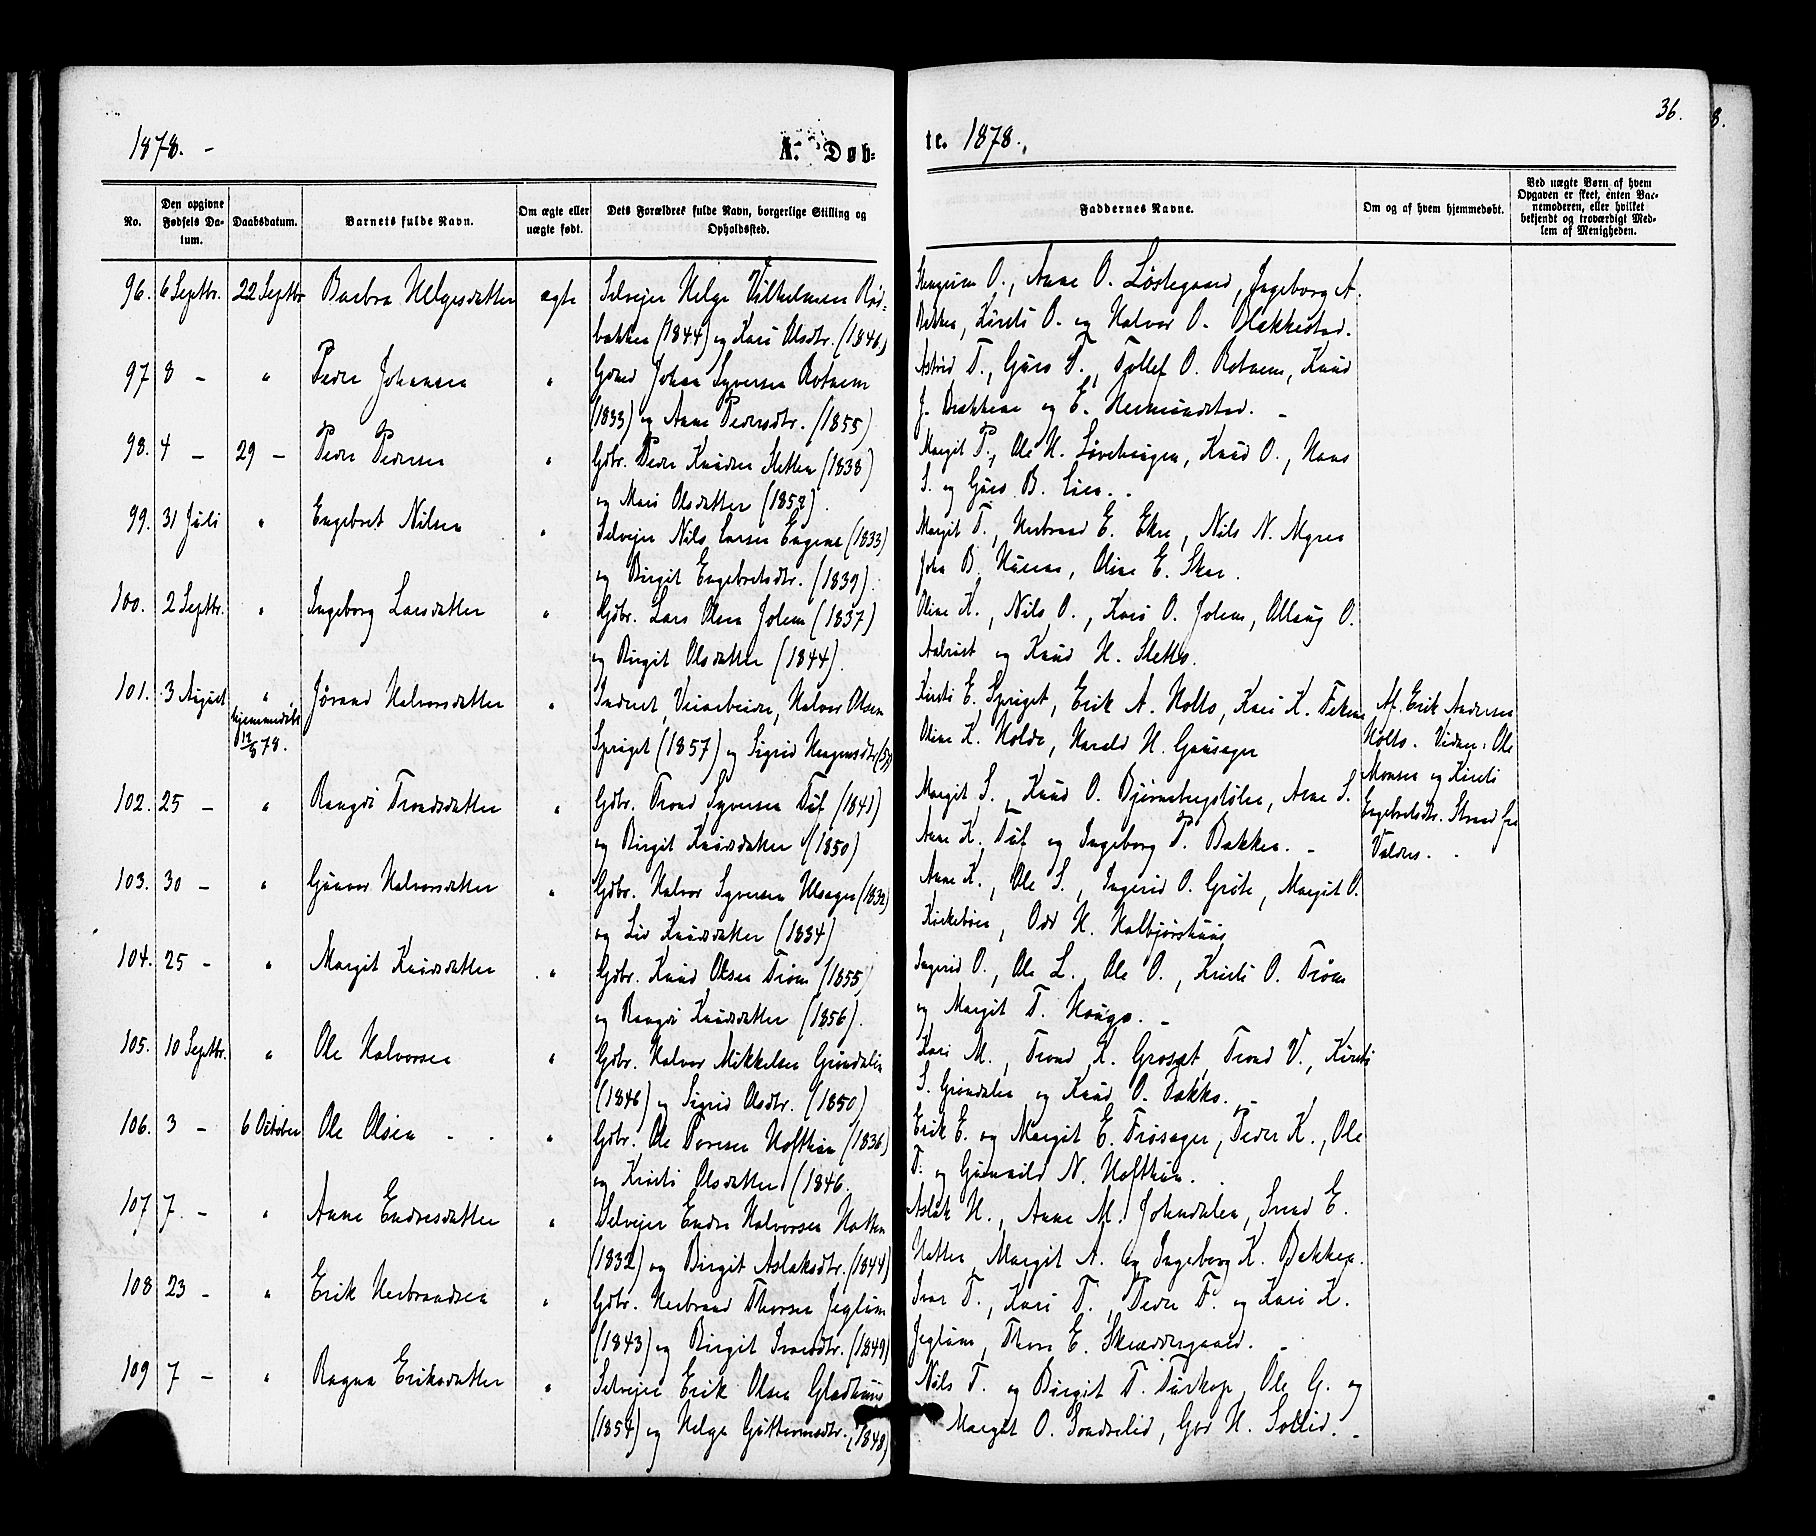 36.
8.
1878. -
A. Døb-
te. 1878.
No.
Den opgivne Fødsels Datum.
Daabsdatum.
Barnets fulde Navn.
Om ægte eller uægte født.
Dets Forældres fulde Navn, borgerlige Stilling og Opholdssted.
Faddernes Navne.
Om og af hvem hjemmedøbt.
Ved uægte Børn af hvem Opgaven er skeet, enten Barnemoderen, eller hvilket bekjendt og troværdigt Medlem af Menigheden.
96. 6 Septbr. 22 Septbr Barbra Helgesdatter ægte Selvejer Helge Vilhelmsen Rød-
bakken (1844) og Kari Olsdtr. (1846)
O., Anne O. Løstegaard, Ingeborg A.
Bakken, Kirsti O. og Halvor O. Blakkestad.
97 8 - " Peder Johansen " Gdmd Johan Syversen Rotnem
(1833) og Anne Pedersdtr. (1855)
Astrid T., Guro T., Tollef O. Rotnem, Knud
J. Brekkene og E. Hermundstad. -
98. 4 - 29 - Peder Pedersen " Gdbr. Peder Knudsen Sletten (1838)
og Mari Olsdatter (1852).
Margit P., Ole H. Løvehaugen, Knud O., Hans
S. og Guro B. Lien.
99. 31 Juli " Engebret Nilsen " Selvejer Nils Larsen Engene (1833)
og Birgit Engebretsdtr. (1839).
Margit T., Herbrand E. Ekre, Nils N. Myren
John B. , Oline E. Sker.
100. 2 Septbr. " Ingeborg Larsdatter " Gdbr. Lars Olsen Jolem (1837)
og Birgit Olsdatter (1844).
Oline K., Nils O., Kari O. Jolem, Ollaug O.
og Knud H. Sletto.
101. 3 August " Jørand Halvorsdatter " Inderst, Veiarbeider, Halvor Olsen
hjemmedøbt
12/8 78.
Spriget (1857) og Sigrid Haagensdtr (57)
Kirsti E. Spriget, Erik A. Holto, Kari K.
Oline K. Holde, Harald H. Gausager
Af Erik Andersen
Holto. Vidner: Ole
Monsen og Kirsti
Engebretsdtr. Strand fra
Valdres.
102. 25 - " Rangdi Trondsdatter " Gdbr. Trond Syversen Tuf (1841)
og Birgit Knudsdatter (1850)
Margit S., Knud O. Bjørnebergstølen, Arne S.
Anne K. Tuf og Ingeborg P. Bakken. -
103. 30 - " Gunvor Halvorsdatter " Gdbr. Halvor Syversen Ulsager (1832)
og Liv Knudsdatter (1834)
Anne K., Ole S., Ingerid O. Grøte, Margit O.
Kirkebøen, Odd H. Halbjørshuus
104. 25 - " Margit Knudsdatter " Gdbr. Knud Olsen Trøim (1855)
og Rangdi Knudsdatter (1856).
Ingerid O., Ole L., Ole O., Kristi O. Trøim
og Margit T. Haugo. -
105. 10 Septbr. " Ole Halvorsen " Gdbr. Halvor Mikkelsen Grøndalen
(1846) og Sigrid Olsdtr. (1850)
Kari M., Trond K. Groset, Trond V., Kirsti
S. Grøndalen og Knud O. Bakko. -
106. 3 - 6 October Ole Olsen " Gdbr. Ole Toresen Hofthun (1836)
og Kristi Olsdatter (1846.
Erik E. og Margit E. Trøsager, Peder K., Ole
T. og Gunnild N. Hofthun.
107 7. - " Anne Endresdatter " Selvejer Endre Halvorsen Hotten
(1832) og Birgit Aslaksdtr. (1844)
Aslak H., Anne M. Johndalen, Svend E.
Hotten, Margit A. og Ingeborg K. Bakken.
108 23 - " Erik Herbrandsen " Gdbr. Herbrand Thorsen Jeglum
(1843) og Birgit Iversdtr. (1849)
Iver T., Kari T., Peder T. og Kari K.
Jeglum, Thore E. Skræddergaard. -
109 7 - " Ragna Eriksdatter " Selvejer Erik Olsen Gladhuus
(1854) og Helga Guttormsdtr. (1848)
Nils T. og Birgit T. Turkop, Ole G. og
Margit O. Sondrelid, Gro H. Sollid. -